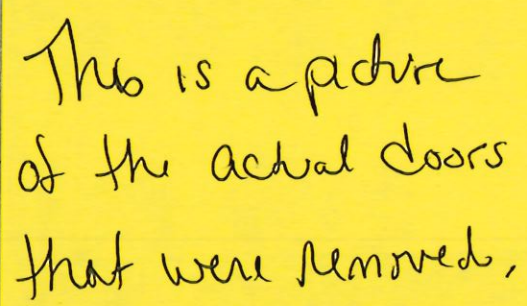 This is a picture
of the actual doors
that were removed.